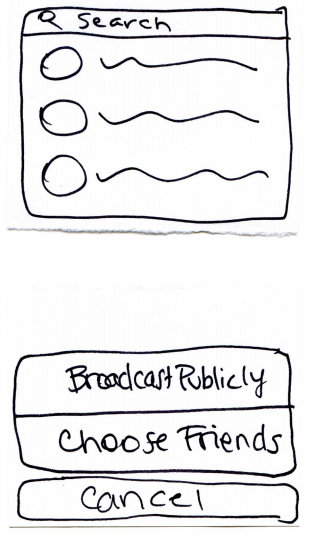 Search
Broadcast Publicly
Choose Friends
Cancel